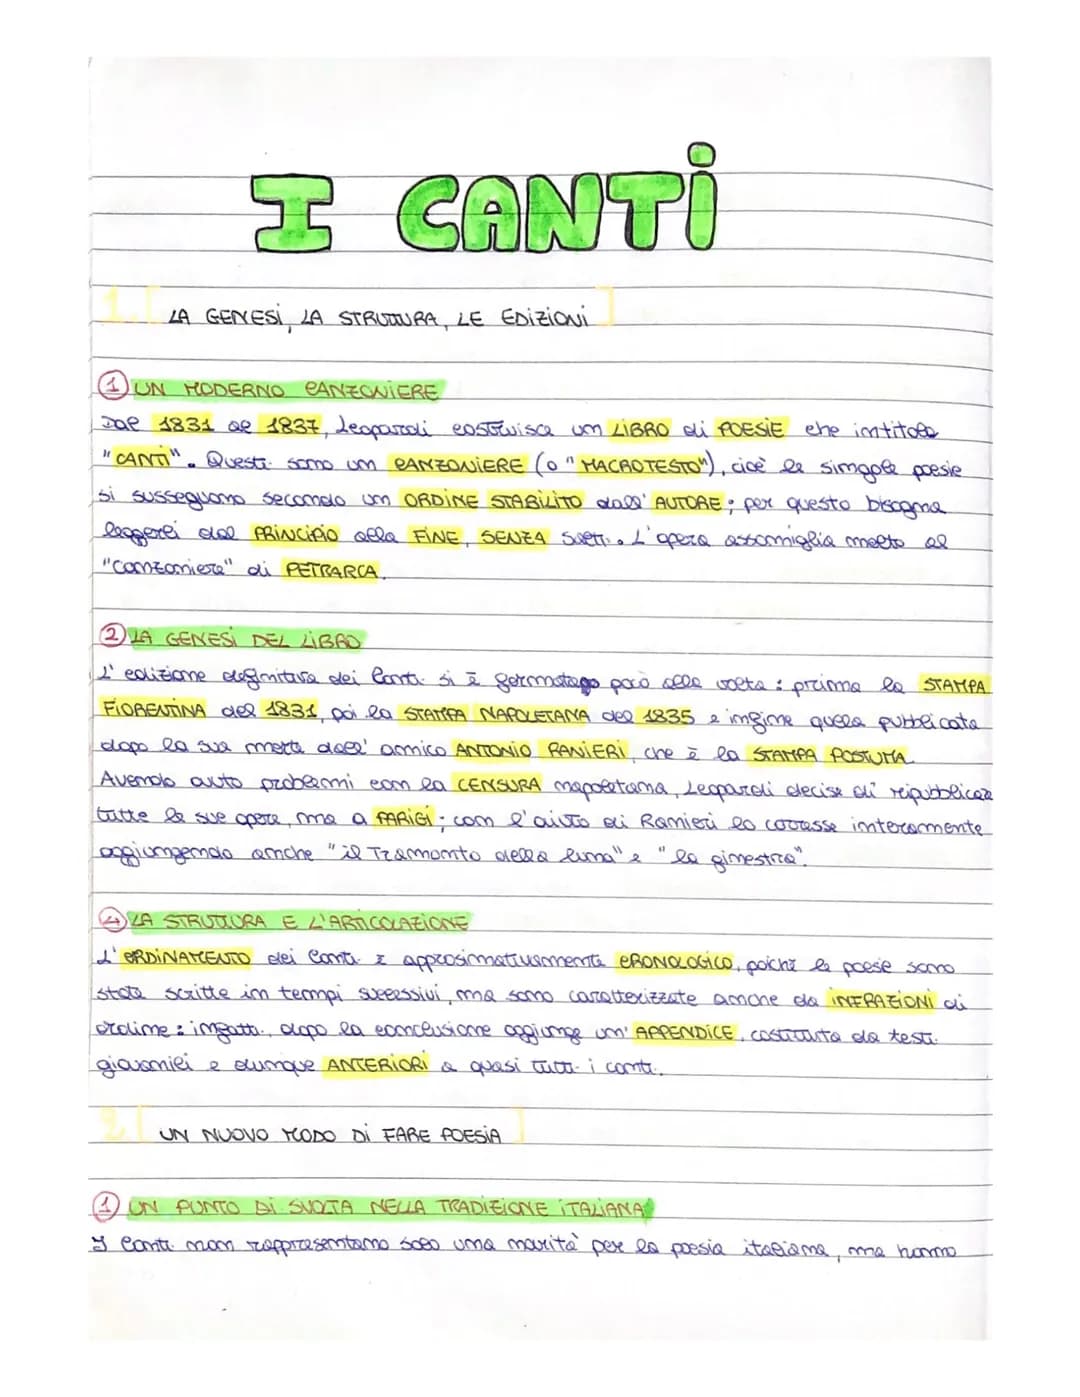 I CANTI
1. [LA GENESI, LA STRUTTURA, LE EDIZIONI]
① UN MODERNO CANZONIERE
Dal 1831 al 1837, Leopardi costruisce un LIBRO di POESIE che intitola
"CANTI". Questi sono un CANZONIERE (o "MACROTESTO"), cioè le singole poesie
si susseguono secondo un ORDINE STABILITO dall'AUTORE; per questo bisogna
leggerli dal PRINCIPIO alla FINE, SENZA salti. L'opera assomiglia molto al
"canzoniere" di PETRARCA.
② LA GENESI DEL LIBRO
L'edizione definitiva dei Canti si è formata poco alla volta: prima la STAMPA
FIORENTINA del 1831, poi la STAMPA NAPOLETANA del 1835 e infine quella pubblicata
dopo la sua morte dall'amico ANTONIO RANIERI, che è la STAMPA POSTUMA.
Avendo avuto problemi con la CENSURA napoletana, Leopardi decise di ripubblicare
tutte le sue opere, ma a PARIGI; con l'aiuto di Ranieri lo corresse interamente
aggiungendo anche "il Tramonto della luna" e "la ginestra".
④ LA STRUTTURA E L'ARTICOLAZIONE
L'ORDINAMENTO dei Canti è approssimativamente CRONOLOGICO, poiché le poesie sono
state scritte in tempi successivi, ma sono caratterizzate anche da INFRAZIONI di
ordine: infatti, dopo la conclusione aggiunge un'APPENDICE, costituita da testi
giovanili e dunque ANTERIORI a quasi tutti i canti.
2. [UN NUOVO MODO DI FARE POESIA]
① UN PUNTO DI SVOLTA NELLA TRADIZIONE ITALIANA
I Canti non rappresentano solo una novità per la poesia italiana, ma hanno